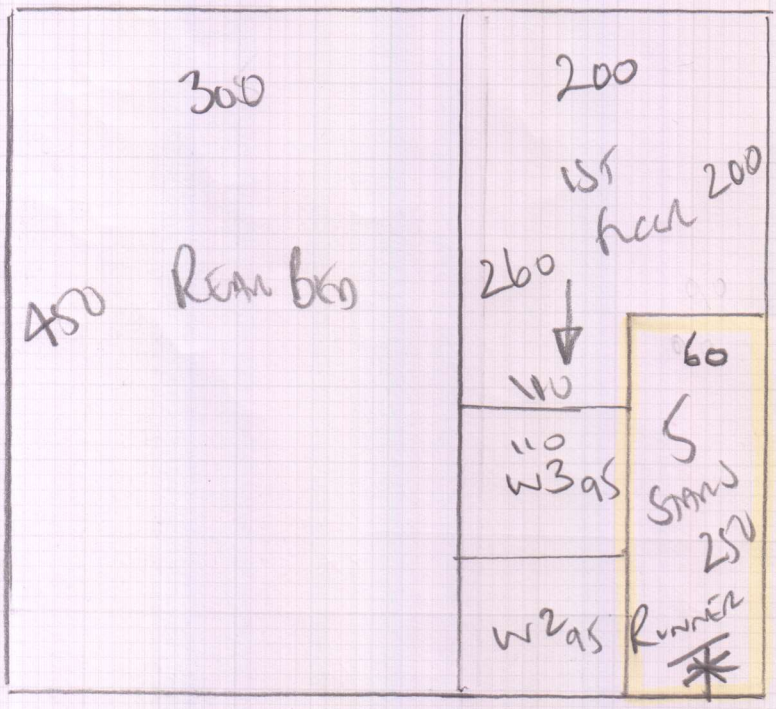 300
450
REAR BED
200
1ST
FLOOR 200
260
110
110
W3 95
W2 95
60
S
STAIRS
250
RUNNER